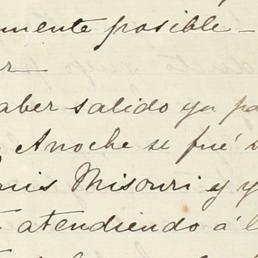 mente posible -
r
aber salido ya pa
Anoche se fué s
uis Misouri y y
atendiendo á l